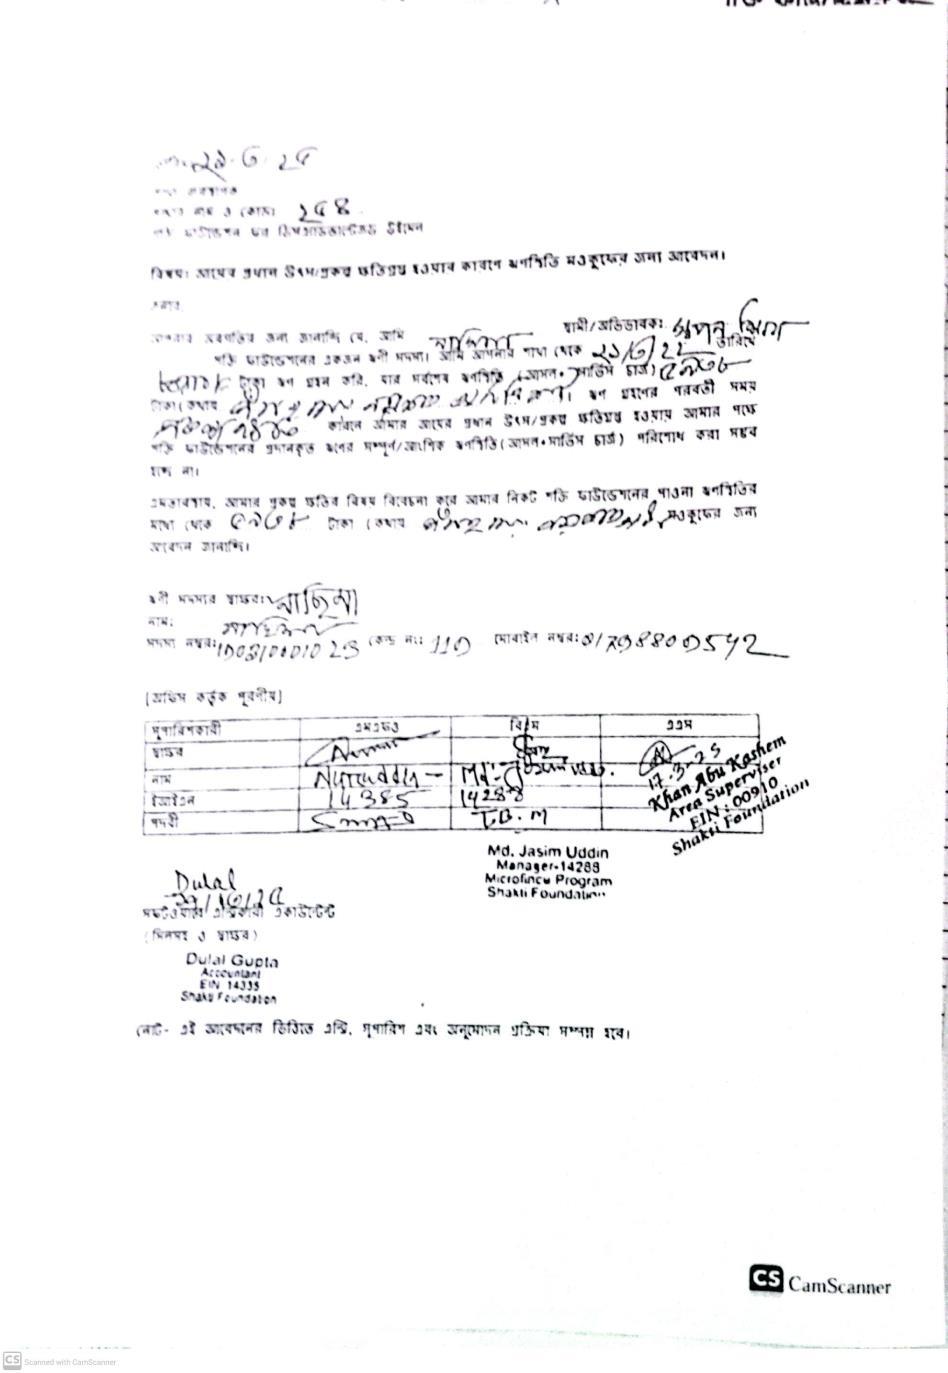 ২৯-৩-২৫
শাখা ব্যবস্থাপক
শাখার নাম ও কোডঃ ২৫৪
শক্তি ফাউন্ডেশন ফর ডিসএ্যাডভান্টেজড উইমেন
বিষয়: আয়ের প্রধান উৎস/প্রকল্প ক্ষতিগ্রস্ত হওয়ার কারণে ঋণস্থিতি মওকুফের জন্য আবেদন।
জনাব,
আপনার অবগতির জন্য জানাচ্ছি যে, আমি নাছিমা স্বামী/অভিভাবক:
শক্তি ফাউন্ডেশনের একজন ঋণী সদস্য। আমি আপনার শাখা থেকে ২১/৩/২২ তারিখে
টাকা ঋণ গ্রহন করি, যার সর্বশেষ ঋণস্থিতি (আসল+সার্ভিস চার্জ) ৫৯৩৮
টাকা (কথায় । ঋণ গ্রহণের পরবর্তী সময়
কারনে আমার আয়ের প্রধান উৎস/প্রকল্প ক্ষতিগ্রস্ত হওয়ায় আমার পক্ষে
শক্তি ফাউন্ডেশনের প্রদানকৃত ঋণের সম্পূর্ণ/আংশিক ঋণস্থিতি (আসল+সার্ভিস চার্জ) পরিশোধ করা সম্ভব
হচ্ছে না।
এমতাবস্থায়, আমার প্রকল্প ক্ষতির বিষয় বিবেচনা করে আমার নিকট শক্তি ফাউন্ডেশনের পাওনা ঋণস্থিতির
মধ্যে থেকে ৫৯৩৮ টাকা (কথায় মওকুফের জন্য
আবেদন জানাচ্ছি।
ঋণী সদস্যর স্বাক্ষর: নাছিমা
নাম: নাছিমা
সদস্য নম্বর: কেন্দ্র নং: 110 মোবাইল নম্বর: 01798800542
[অফিস কর্তৃক পূরনীয়]
সুপারিশকারী এমএফও বিএম এএম
স্বাক্ষর 17-3-25
নাম Nuruddin Md. Jasim Uddin Khan Abu Kashem
ইআইএন 14385 14288 Area Superviser
পদবী T.B.M EIN : 00910
Shakti Foundation
Md. Jasim Uddin
Manager-14288
Microfince Program
Shakti Foundation
Dulal
সফটওয়্যারে এন্ট্রিকারী একাউন্টেন্ট
(সিলসহ ও স্বাক্ষর)
Dulal Gupta
Accountant
EIN 14335
Shakti Foundation
নোট- এই আবেদনের ভিত্তিতে এন্ট্রি, সুপারিশ এবং অনুমোদন প্রক্রিয়া সম্পন্ন হবে।
CS CamScanner
CS Scanned with CamScanner